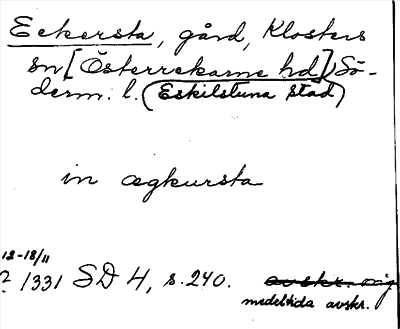 Eckersta, gård, Klosters
sn [Österrekarne hd], Sö-
derm. l. (Eskilstuna stad)
in ægkursta
12-18/11
? 1331 SD 4, s. 240. avskr. orig
medeltida avskr.